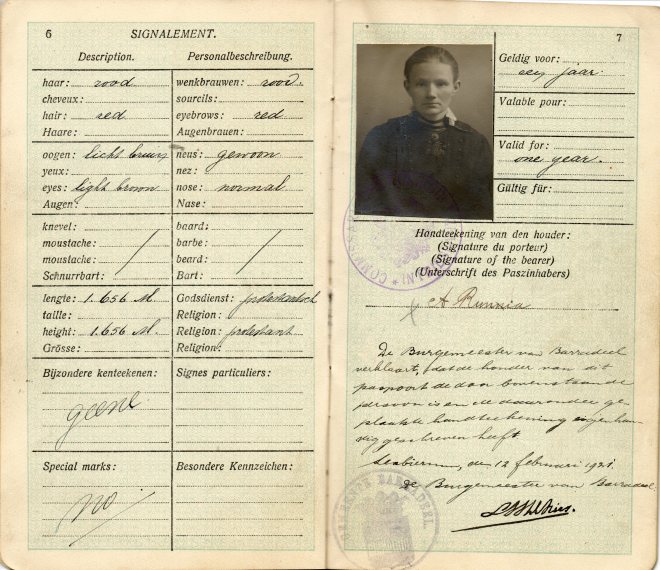 6
SIGNALEMENT.
Description. Personalbeschreibung.
haar: rood
cheveux:
hair: red
Haare:
wenkbrauwen: rood.
sourcils:
eyebrows: red
Augenbrauen:
oogen: licht bruin
yeux:
eyes: light brown
Augen:
neus: gewoon
nez:
nose: normal
Nase:
knevel:
moustache:
moustache:
Schnurrbart:
baard:
barbe:
beard:
Bart:
lengte: 1.656 M.
taille:
height: 1.656 M.
Grösse:
Godsdienst: protestantsch
Religion:
Religion: protestant
Religion:
Bijzondere kenteekenen:
geene
Signes particuliers:
Special marks:
no
Besondere Kennzeichen:
7
Geldig voor:
een jaar.
Valable pour:
Valid for:
one year.
Gültig für:
Handteekening van den houder:
(Signature du porteur)
(Signature of the bearer)
(Unterschrift des Paszinhabers)
A Runnia
De Burgemeester van Barradeel
verklaart, dat de houder van dit
paspoort de door bovenstaande
persoon is en de daaronder ge-
plaatste handteekening eigenhan-
dig geschreven heeft
Sexbierum, den 12 februari 1921.
De Burgemeester van Barradeel